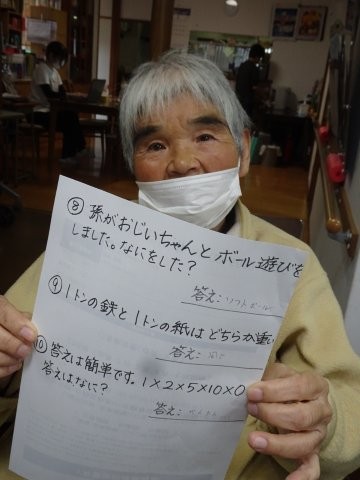 ⑧ 孫がおじいちゃんと ボール遊びを
しました。なにをした?
答え：ソフトボール
⑨ 1トンの鉄と1トンの紙は どちらが重い
答え：同じ
⑩ 答えは簡単です。1×2×5×10×0
答えはなに?
答え：かんたん